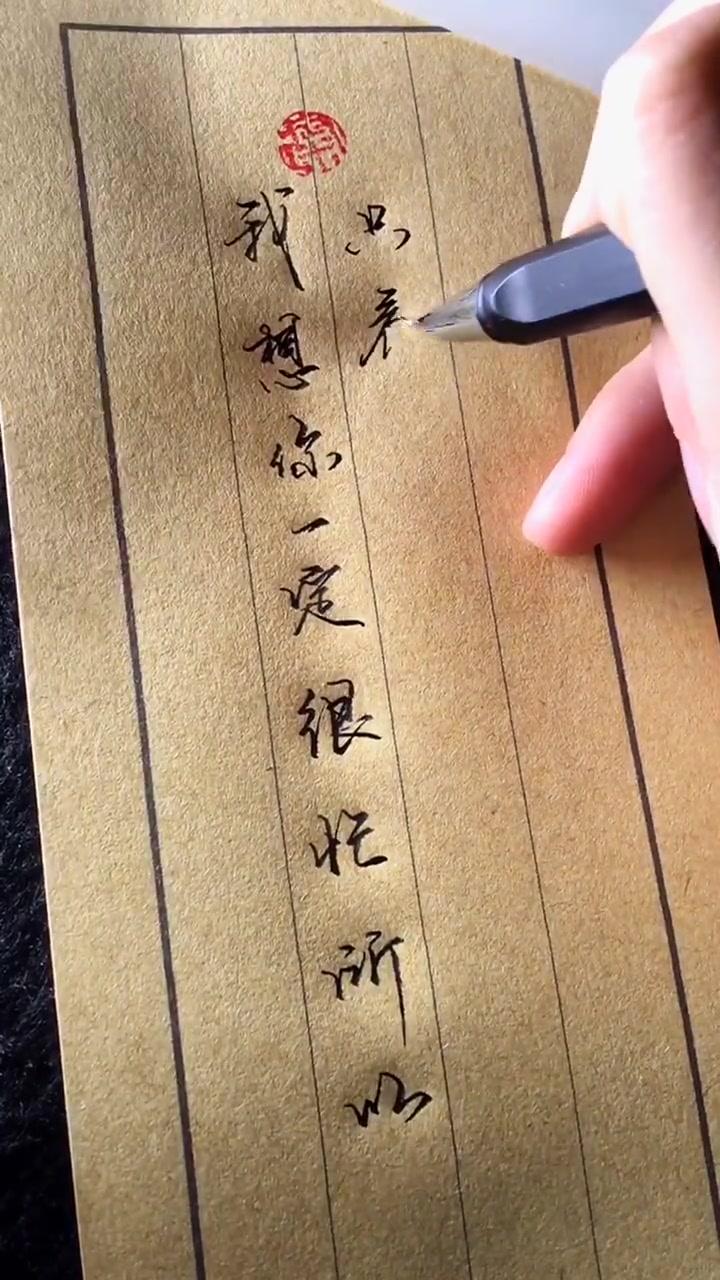 我想你一定很忙所以
只看